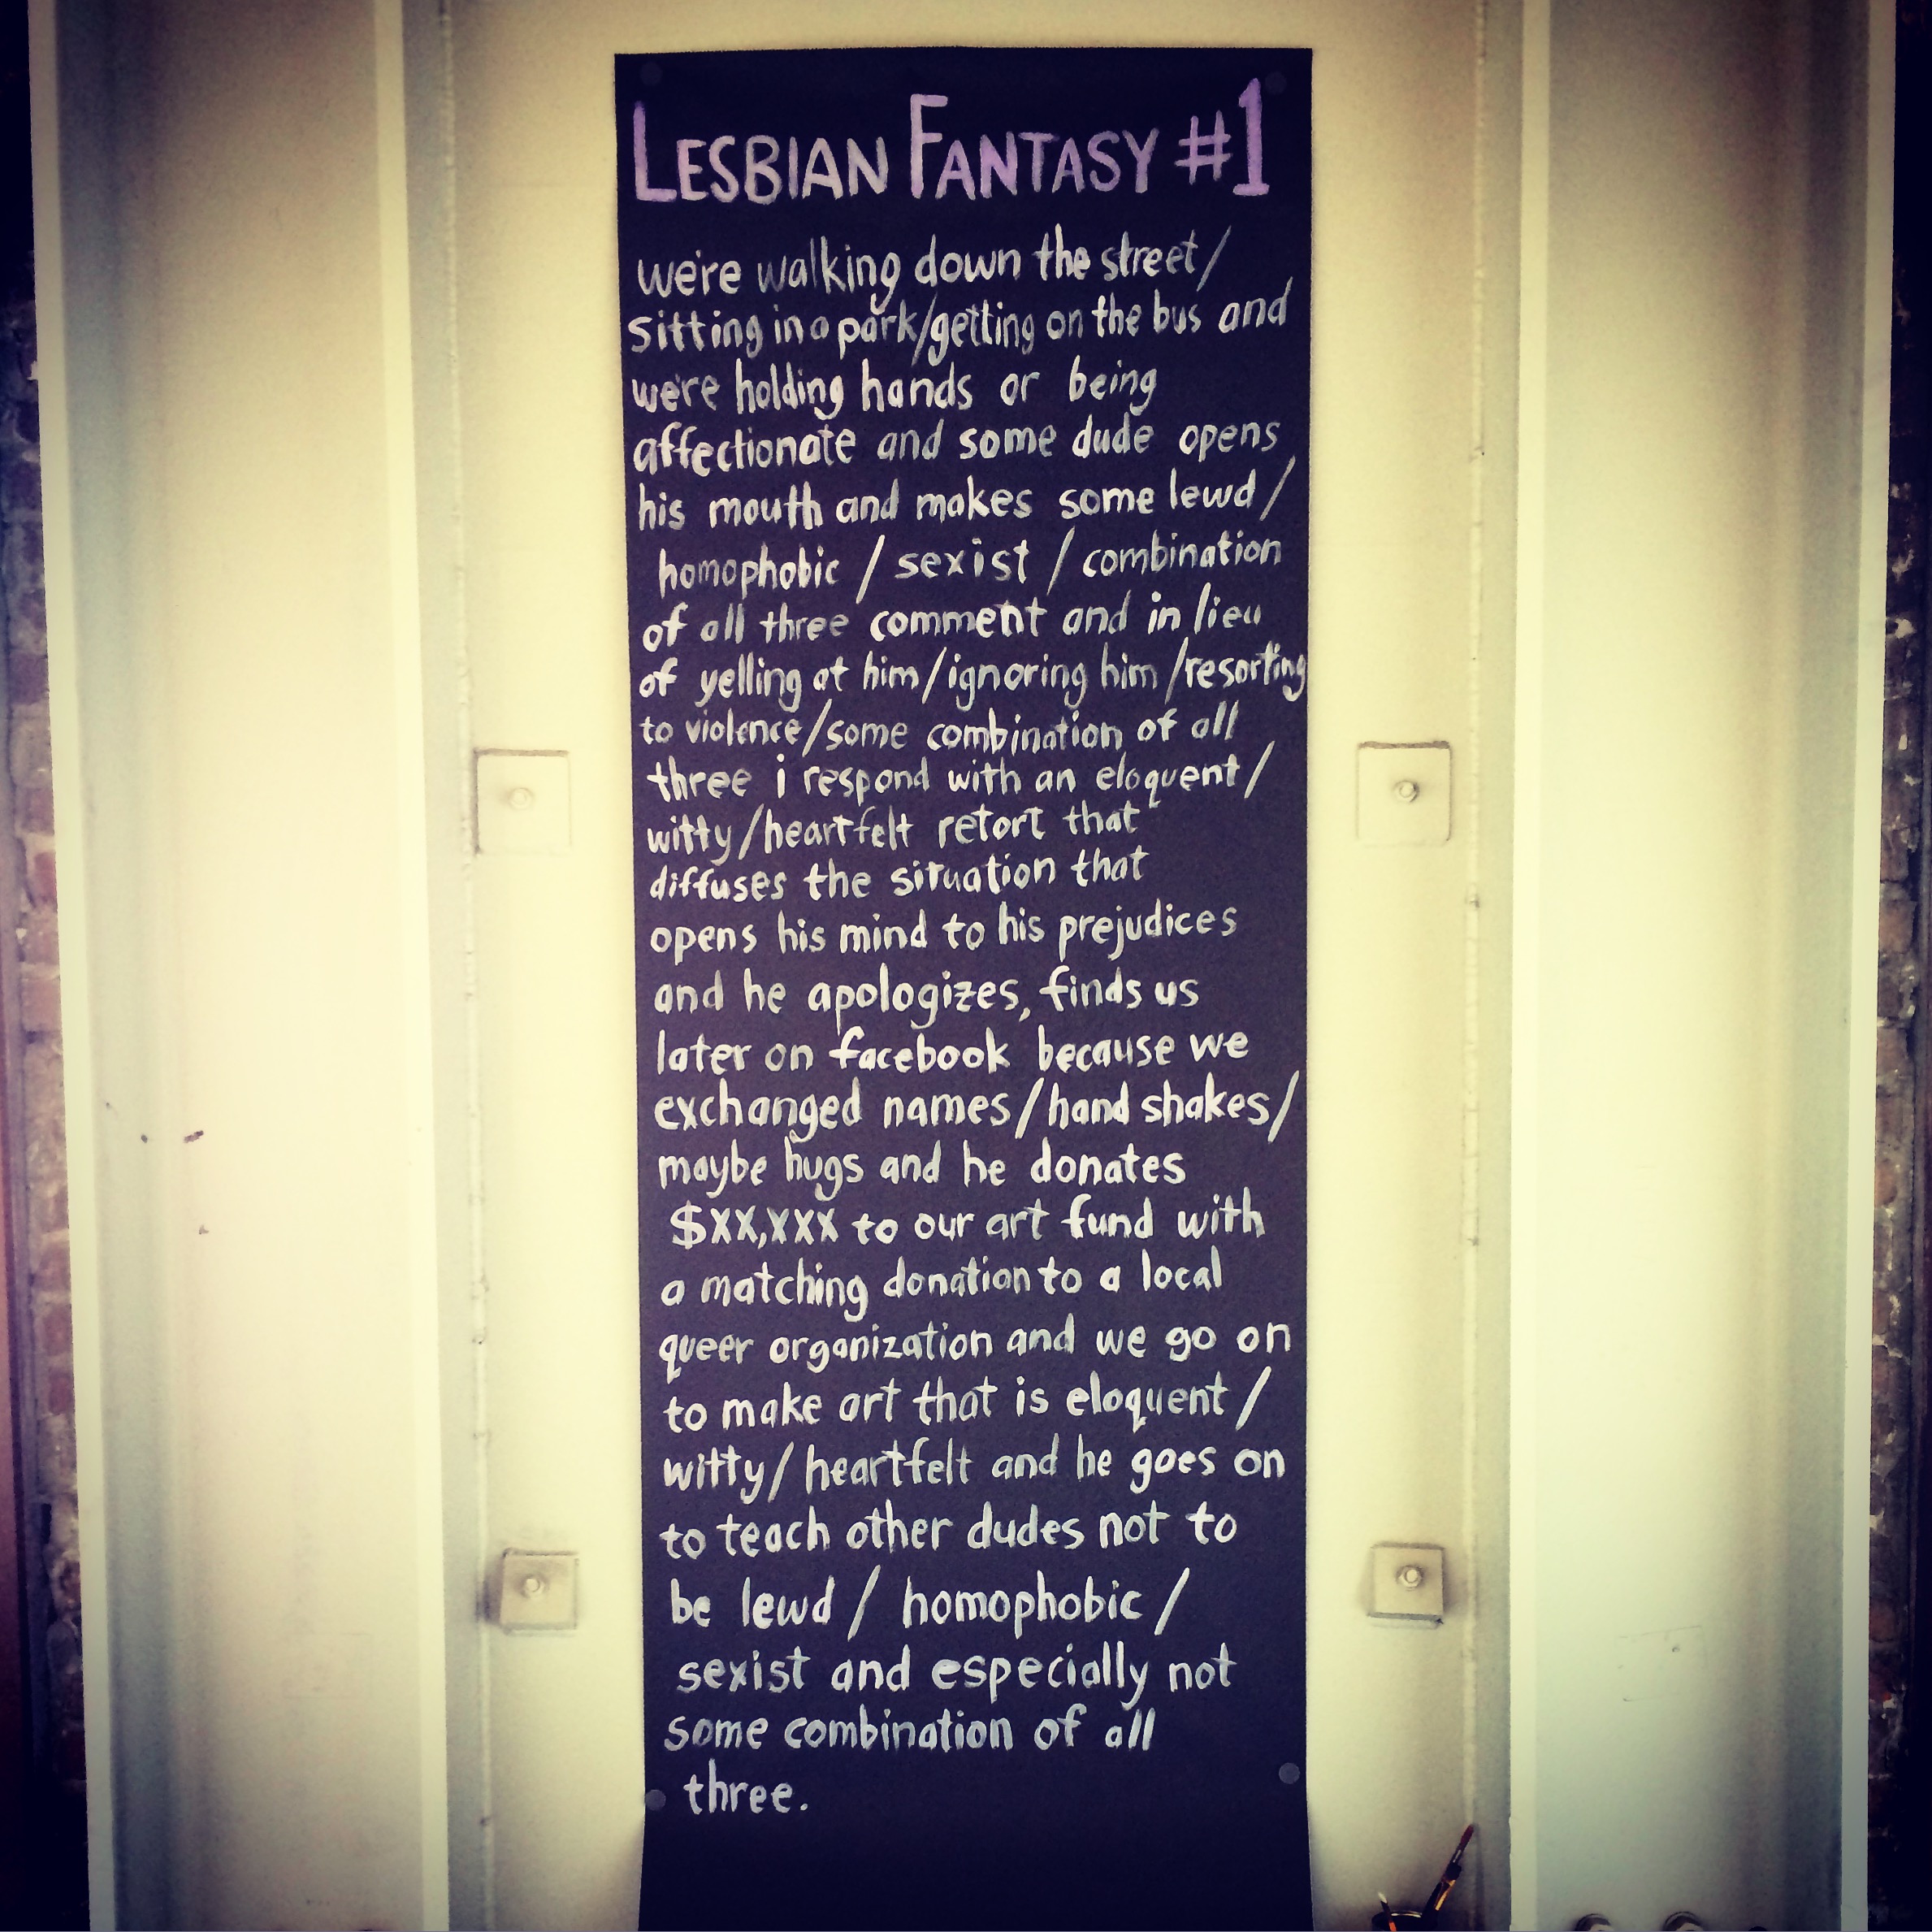 LESBIAN FANTASY #1
we're walking down the street/
sitting in a park/getting on the bus and
we're holding hands or being
affectionate and some dude opens
his mouth and makes some lewd/
homophobic / sexist / combination
of all three comment and in lieu
of yelling at him/ignoring him/resorting
to violence/some combination of all
three i respond with an eloquent/
witty/heartfelt retort that
diffuses the situation that
opens his mind to his prejudices
and he apologizes, finds us
later on facebook because we
exchanged names/hand shakes/
maybe hugs and he donates
$XX,XXX to our art fund with
a matching donation to a local
queer organization and we go on
to make art that is eloquent/
witty/heartfelt and he goes on
to teach other dudes not to
be lewd / homophobic /
sexist and especially not
some combination of all
three.